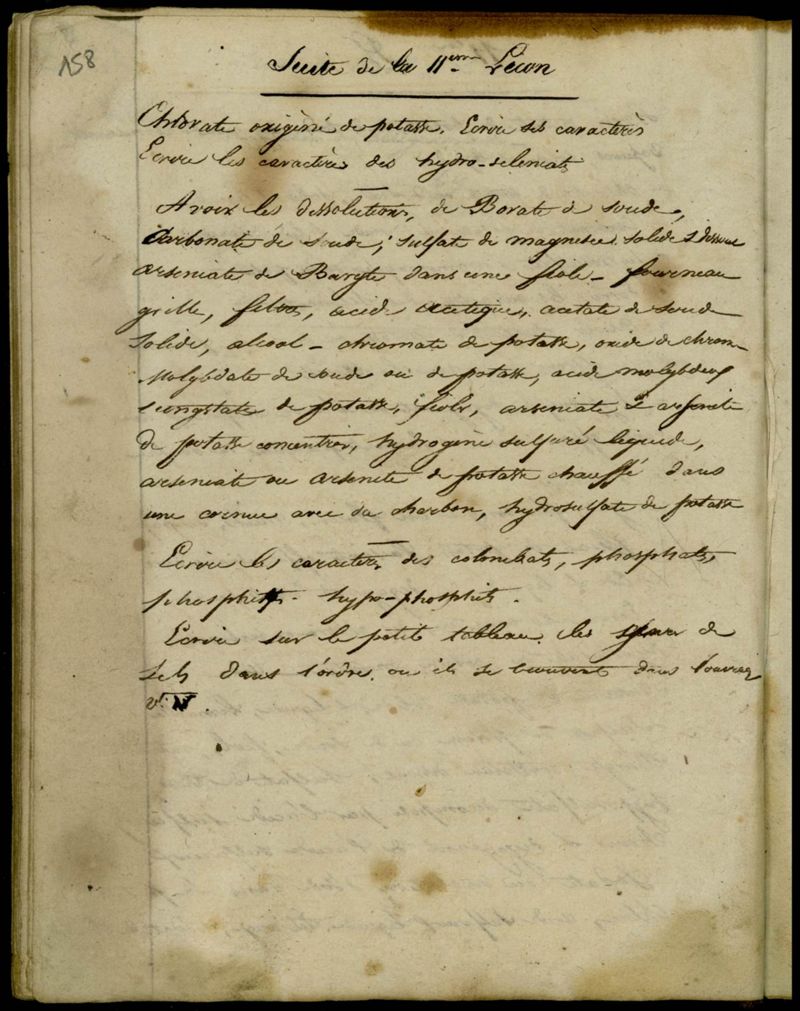 158
Suite de la 11eme Lecon
Chlorate oxigèné de potasse. Ecrire ses caractères
Ecrire les caractères des hydro-seleniats
Avoir les dissolutions, de Borate de soude,
Carbonate de soude, sulfat de magnesie solide & dissous
arseniate de Baryte dans une fiole - fourneau
grille, filtre, acide acetique, acetate de soude
solide, alcool - chromate de potasse, oxide de chrom
Molybdate de soude ou de potasse, acide molybdeux
tongstate de potasse, fiols, arseniate & arsenite
de potasse concentrès, hydrogène sulfuré liquide,
arseniate ou arsenite de potasse chauffé dans
une cornue avec du charbon, hydrosulfate de potasse
Ecrire les caractères des colombats, phosphats,
phosphits - hypo-phosphits.
Ecrire sur le petit tableau les genres de
sels dans l'ordre ou ils se trouvent dans l'ouvrage